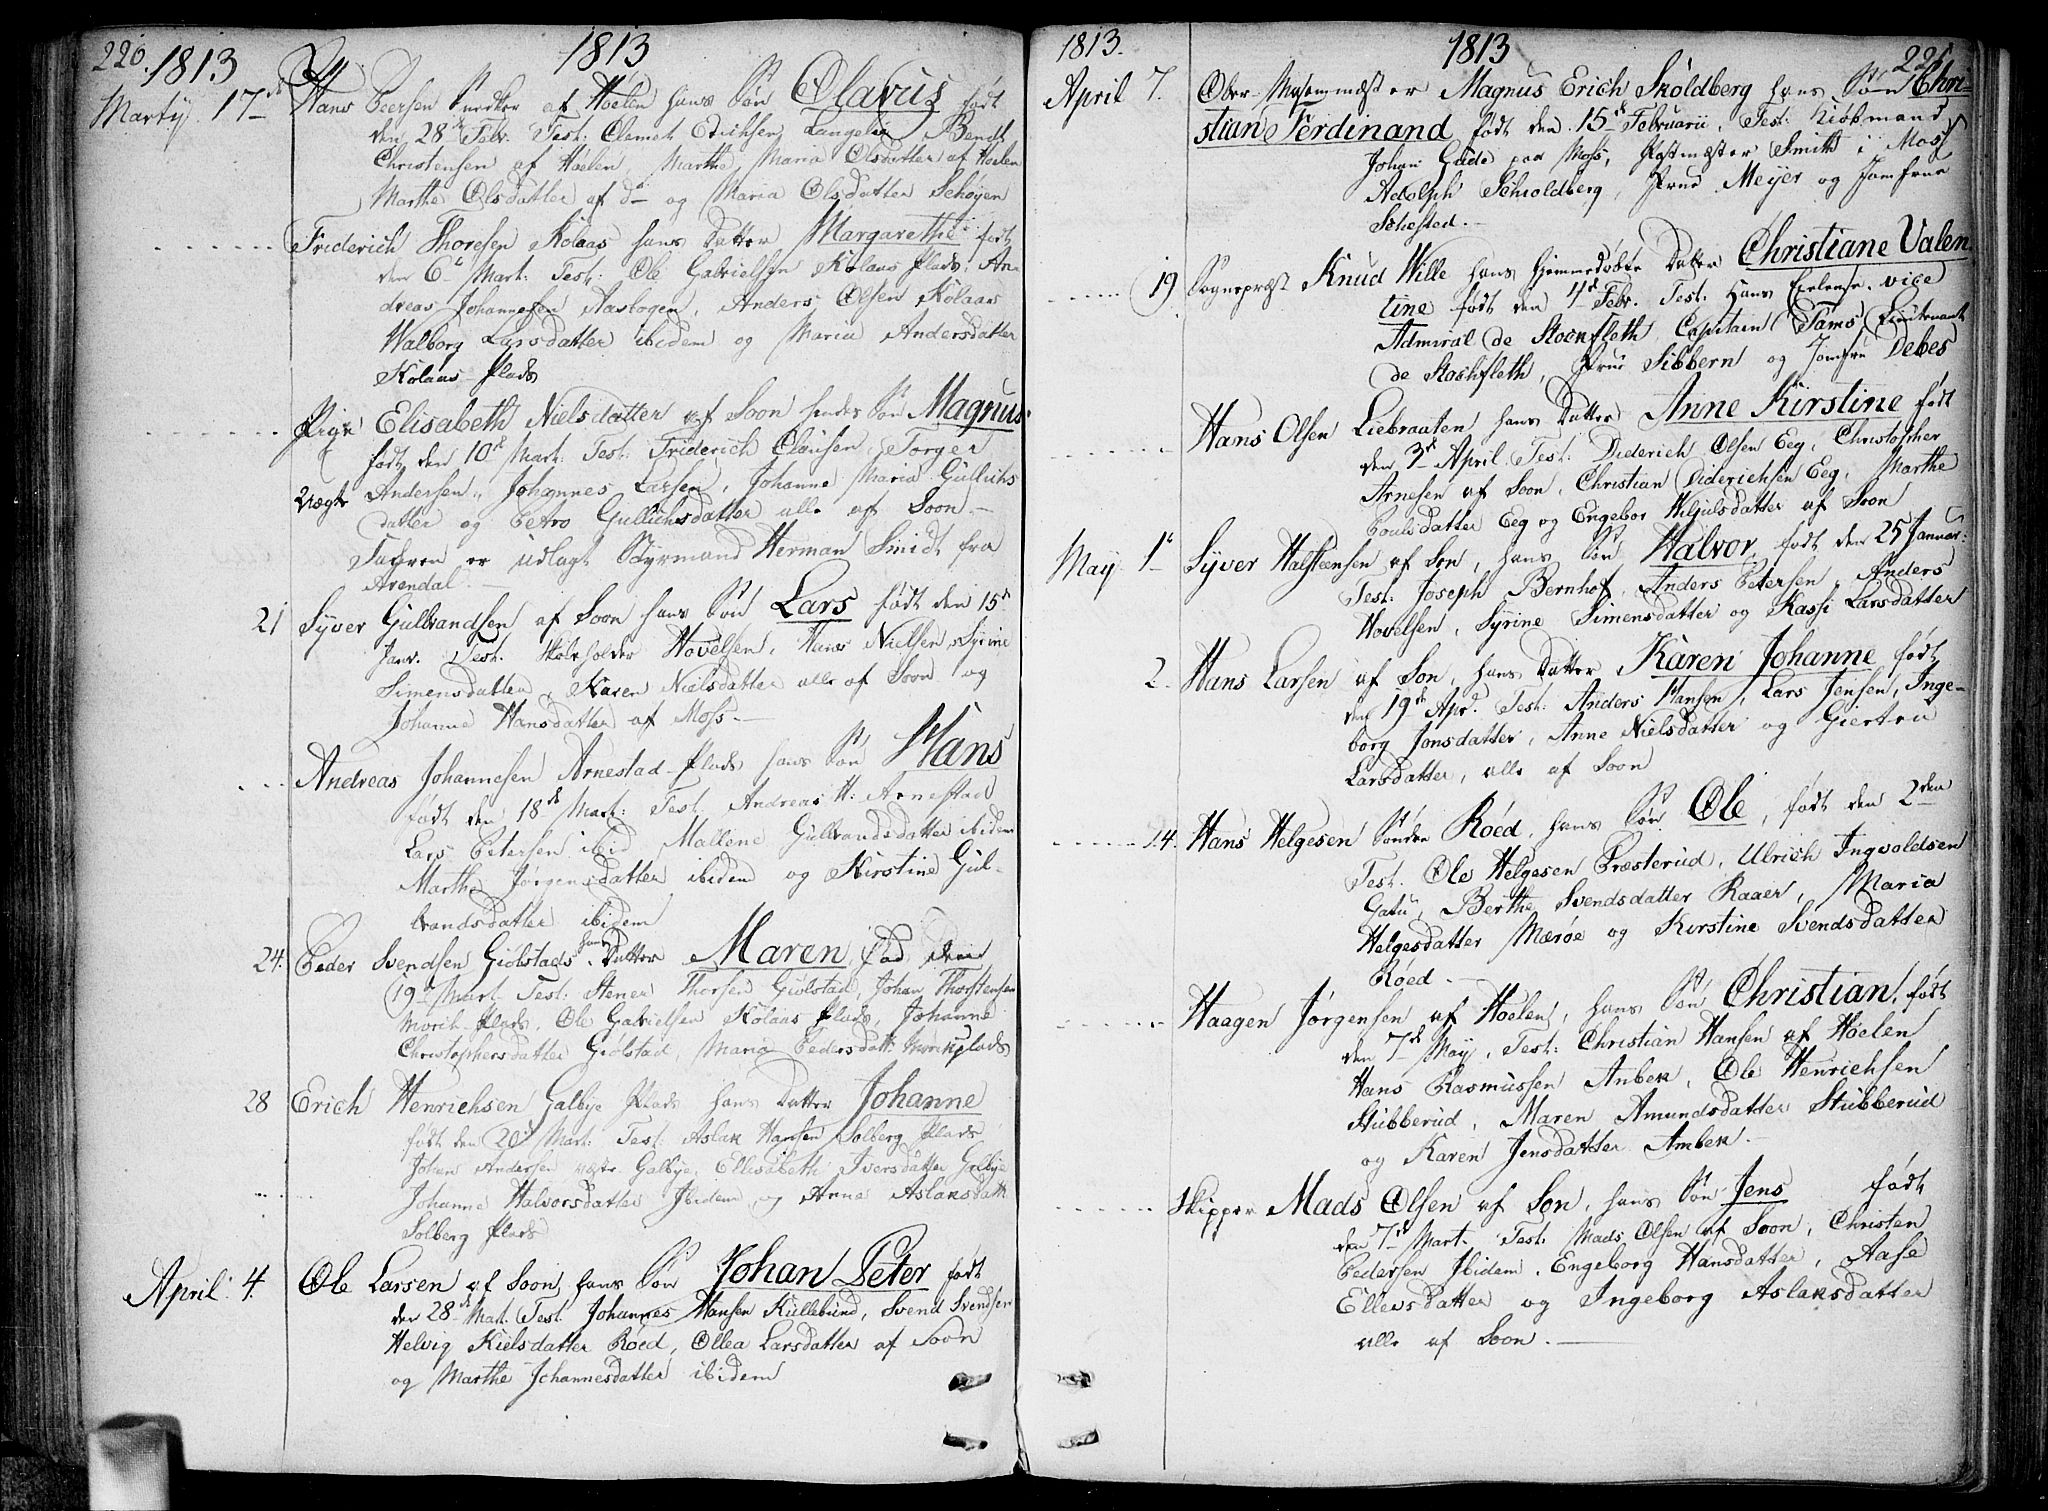 220. 1813 1813
Martÿ. 17de Hans Peersen Snedker af Hoelen hans Søn Olavus født
den 28de Febr. Test: Clemet Erichsen Langelie Bendt
Christensen af Hoelen, Marthe Maria Olsdatter af Hoelen
Marthe Olsdatter af do og Maria Olsdatter Schøyen
Friderich Thoresen Kolaas hans Datter Margarethe født
den 6te Mart: Test: Ole Gabrielsen Kolaas Plads, An
dreas Johannesen Aasbogen, Anders Olsen Kolaas
Walborg Larsdatter ibidem og Maria Andersdatter
Kolaas Plads
Pige Elisabeth Nielsdatter af Soon hendes Søn Magnus
født den 10de Mart: Test: Friderich Clausen, Torger
Uægte Andersen, Johannes Larsen, Johanne Maria Gullichs
datter og Petro Gullichsdatter alle af Soon.
Faderen er udlagt Styrmand Herman Smidt fra
Arendal.
21 Syver Gulbrandsen af Soon hans Søn Lars født den 15de
Janv. Test. Skoleholder Hovelsen, Hans Nielsen, Syrine
Simensdatter, Karen Nielsdatter alle af Soon og
Johanne Hansdatter af Moss.
Andreas Johannesen Arnestad-Plads hans Søn Hans
født den 18de Mart: Test. Andreas H: Arnestad
Lars Petersen ibid Mallene Gulbrandsdatter ibidem
Marthe Jørgensdatter ibidem og Kirstine Gul-
brandsdatter ibidem
24. Peder Svendsen Giølstads hans Datter Maren, fød den
19de Mart. Test: Stener Thorsen Giølstad, Johan Thorstensen
Morck-plads, Ole Gabrielsen Kolaas Plads, Johanne
Christophersdatter Giølstad, Maria Pedersdatt: Morkplads
28 Erich Henrichsen Galbye Plads hans Datter Johanne
født den 20de Mart: Test: Aslak Hansen Solberg Plads
Johan Andersen Galbye, Ellisabeth Iversdatter Galbye
Johanne Halvorsdatter Ibidem og Anne Aslaksdatt
Solberg Plads
April: 4. Ole Larsen af Soon hans Søn Johan Peter født
den 28de Mart: Test Johannes Hansen Kullebund, Svend Svendsen
Helvig Kielsdatter Røed, Ollea Larsdatter af Soon
og Marthe Johannesdatter ibidem
1813. 1813 221
April 7. Ober-Masemmæster Magnus Erich Skoldberg hans Søn Chri-
stian Ferdinand født den 15de Februarii, Test: Kiøbmand
Johan Gude paa Moss, Postmæster Smith i Moss
Adolph Schioldberg, Frue Meyer og Jomfrue
Sehested.
19 Sognepræst Knud Wille hans hjemmedøbte Datter Christiane Valen
tine født den 4de Febr. Test: Hans Exelense vice
Admiral de Stockfleth, Capitain Tams, Lieutenant
de Stockfleth, Frue Sibbern og Jomfru Debes
Hans Olsen Liebraaten hans Datter Anne Kirstine født
den 3de April. Test: Diderich Olsen Eeg, Christopher
Arnesen af Soon, Christian Diderichsen Eeg, Marthe
Poulsdatter Eeg og Engebor Hljulsdatter af Soon
May 1te Syver Halsteensen af Son, hans Søn Halvor født den 25 Januar:
Test: Joseph Bernhof, Anders Petersen, Anders
Hovelsen, Syrine Simensdatter og Kassi Larsdatter
2. Hans Larsen af Son, hans Datter Karen Johanne født
den 19de Apr. Test: Anders Hansen, Lars Jensen, Inge-
borg Jonsdatter, Anne Nielsdatter og Giertru
Larsdatter, alle af Soon
14. Hans Helgesen Søndre Røed, hans Søn Ole, født den 2den
Test. Ole Helgesen Presterud, Ulrich Ingvoldsen
Gatu, Berthe Svendsdatter Raaer, Maria
Helgesdatter Mærøe og Kirstine Svendsdatter
Røed.
Haagen Jørgensen af Hoelen, hans Søn Christian, født
den 7de May, Test: Christian Hansen af Hoelen
Hans Rasmussen Anbek, Ole Henrichsen
Stubberud, Maren Amundsdatter Stubberud
og Karen Jensdatter Ambek.
Skipper Mads Olsen af Son, hans Søn Jens født
den 7de Mart. Test: Mads Olsen af Soon, Christen
Pedersen Ibidem, Engeborg Hansdatter, Aase
Ellevsdatter og Ingeborg Aslaksdatter
alle af Soon.